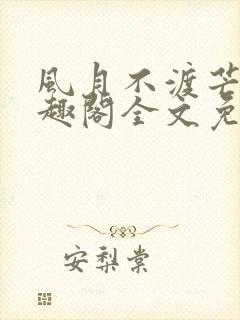 風月不渡芒
趣閣全文免
安梨棠